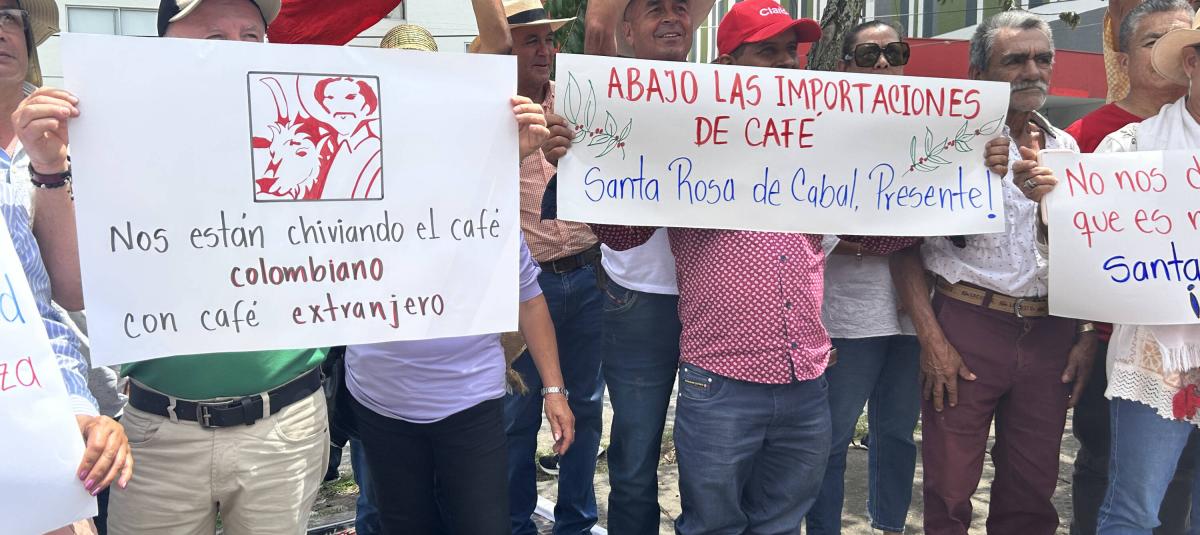 za
Nos están chiviando el café
colombiano
con café extranjero
Claro
ABAJO LAS IMPORTACIONES
DE CAFÉ
Santa Rosa de Cabal, Presente!
No nos
que es
Santa